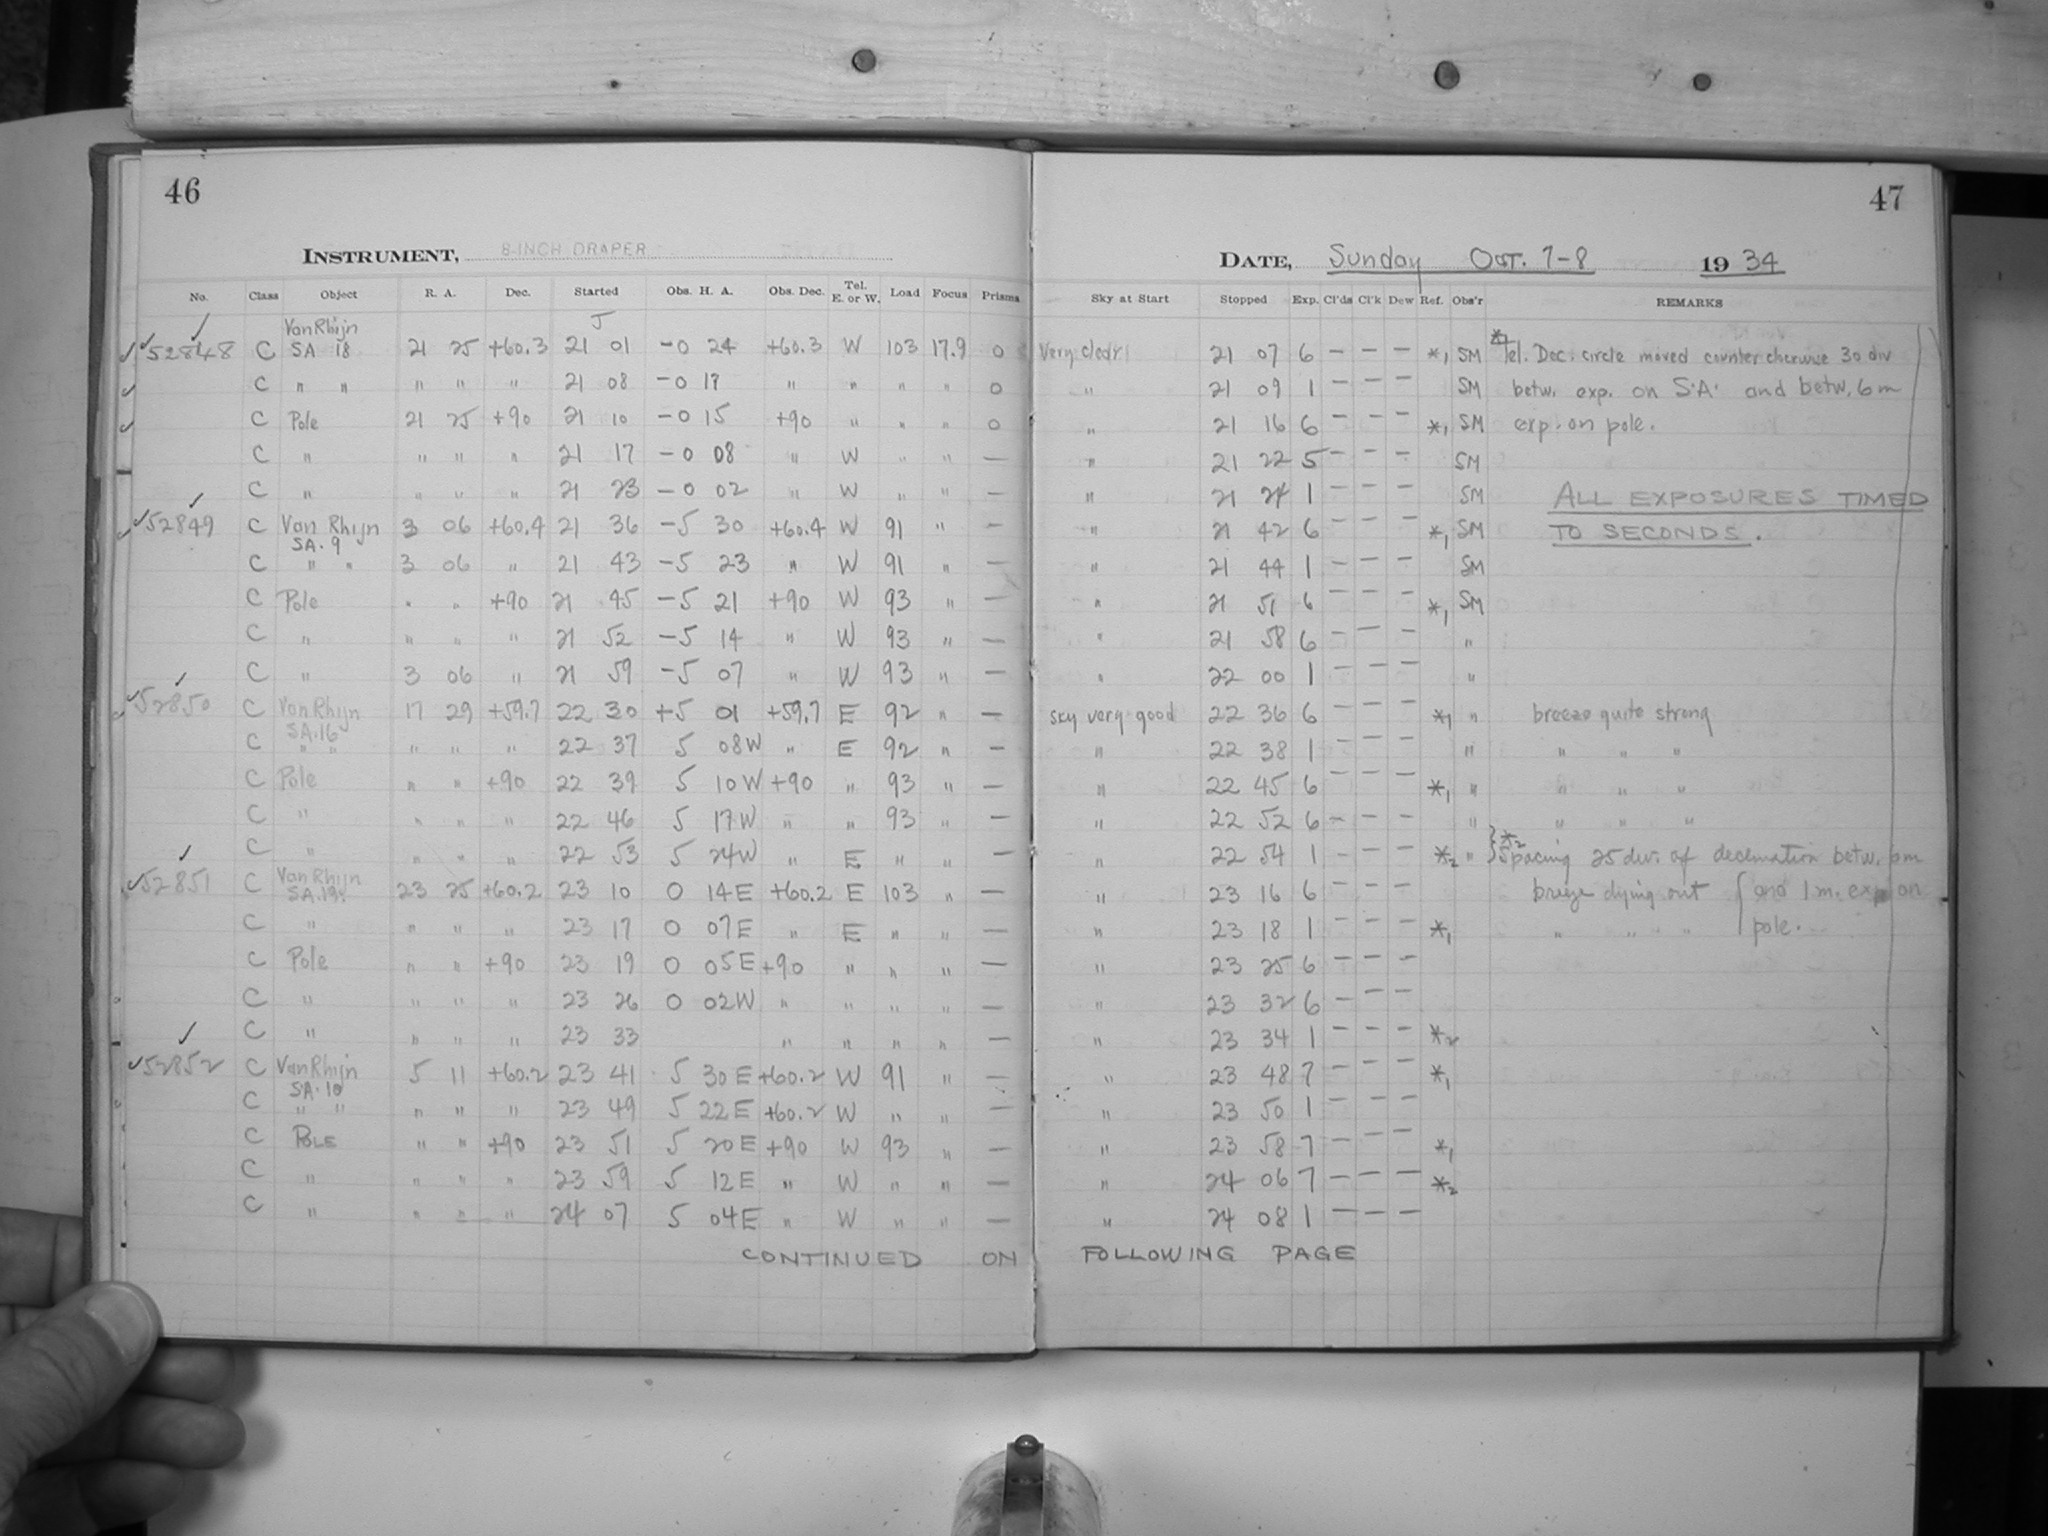 46
47
INSTRUMENT, 8-INCH DRAPER
DATE, Sunday Oct. 7-8 1934
No. Class Object R. A. Dec. Started Obs. H. A. Obs. Dec. Tel. E. or W. Load Focus Prisms Sky at Start Stopped Exp. Cl'ds Cl'k Dew Ref. Obs'r REMARKS
J
52848 C Van Rhijn SA 18 21 25 +60.3 21 01 -0 24 +60.3 W 103 17.9 0 Very clear 21 07 6 – – – *1 SM *1 Tel. Dec. circle moved counter 30 div
C " " " " " 21 08 -0 17 " " " " 0 " 21 09 1 – – – SM betw. exp. on S.A. and betw. 6m
C Pole 21 25 +90 21 10 -0 15 +90 " " " 0 " 21 16 6 – – – *1 SM exp. on pole.
C " " " " 21 17 -0 08 " W " " – " 21 22 5 – – – SM
C " " " " 21 23 -0 02 " W " " – " 21 24 1 – – – SM ALL EXPOSURES TIMED
52849 C Van Rhijn SA. 9 3 06 +60.4 21 36 -5 30 +60.4 W 91 " – " 21 42 6 – – – *1 SM TO SECONDS.
C " " 3 06 " 21 43 -5 23 " W 91 " – " 21 44 1 – – – SM
C Pole " " +90 21 45 -5 21 +90 W 93 " – " 21 51 6 – – – *1 SM
C " " " " 21 52 -5 14 " W 93 " – " 21 58 6 – – – "
C " 3 06 " 21 59 -5 07 " W 93 " – " 22 00 1 – – – "
52850 C Van Rhijn SA.16 17 29 +59.7 22 30 +5 01 +59.7 E 92 " – sky very good 22 36 6 – – – *1 " breeze quite strong
C " " " " " 22 37 5 08W " E 92 " – " 22 38 1 – – – " " " "
C Pole " " +90 22 39 5 10W +90 " 93 " – " 22 45 6 – – – *1 " " " "
C " " " " 22 46 5 17W " " 93 " – " 22 52 6 – – – " " " "
C " " " " 22 53 5 24W " E " " – " 22 54 1 – – – *2 " *2 Spacing 25 div. of declination betw. 6m
52851 C Van Rhijn SA.19 23 25 +60.2 23 10 0 14E +60.2 E 103 " – " 23 16 6 – – – breeze dying out and 1 m. exp on
C " " " " 23 17 0 07E " E " " – " 23 18 1 – – – *1 " " " pole.
C Pole " " +90 23 19 0 05E +90 " " " – " 23 25 6 – – –
C " " " " 23 26 0 02W " " " " – " 23 32 6 – – –
C " " " " 23 33 " " " " – " 23 34 1 – – – *2
52852 C Van Rhijn SA.10 5 11 +60.2 23 41 5 30E +60.2 W 91 " – " 23 48 7 – – – *1
C " " " " " 23 49 5 22E +60.2 W " " – " 23 50 1 – – –
C POLE " " +90 23 51 5 20E +90 W 93 " – " 23 58 7 – – – *1
C " " " " 23 59 5 12E " W " " – " 24 06 7 – – – *2
C " " " " 24 07 5 04E " W " " – " 24 08 1 – – –
CONTINUED ON FOLLOWING PAGE